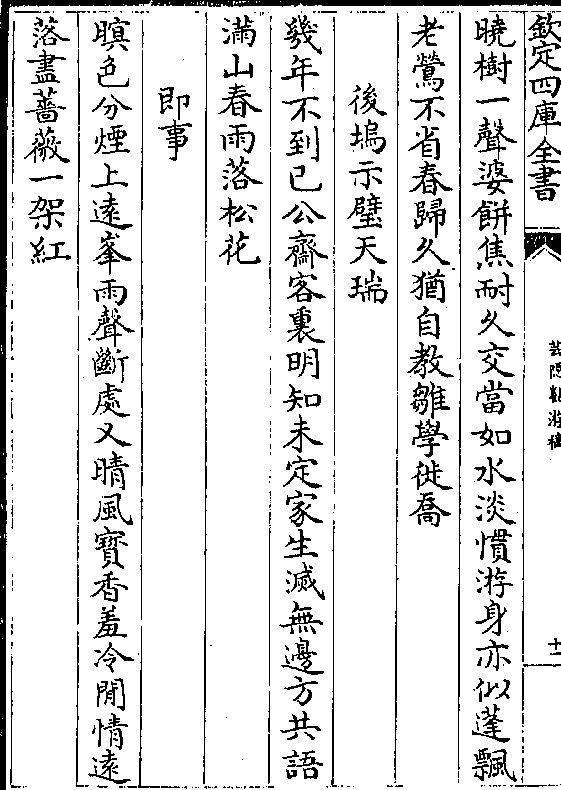 欽定四庫全書
芸隠勌游稿
十一
曉樹一聲婆餅焦耐久交當如水淡慣游身亦似蓬飄
老鶯不省春歸久猶自教雛學徙喬
後塢示璧天瑞
幾年不到已公齋客裏明知未定家生滅無邊方共語
滿山春雨落松花
即事
暝色分煙上遠峯雨聲斷處又晴風寳香羞冷閒情遠
落盡薔薇一架紅